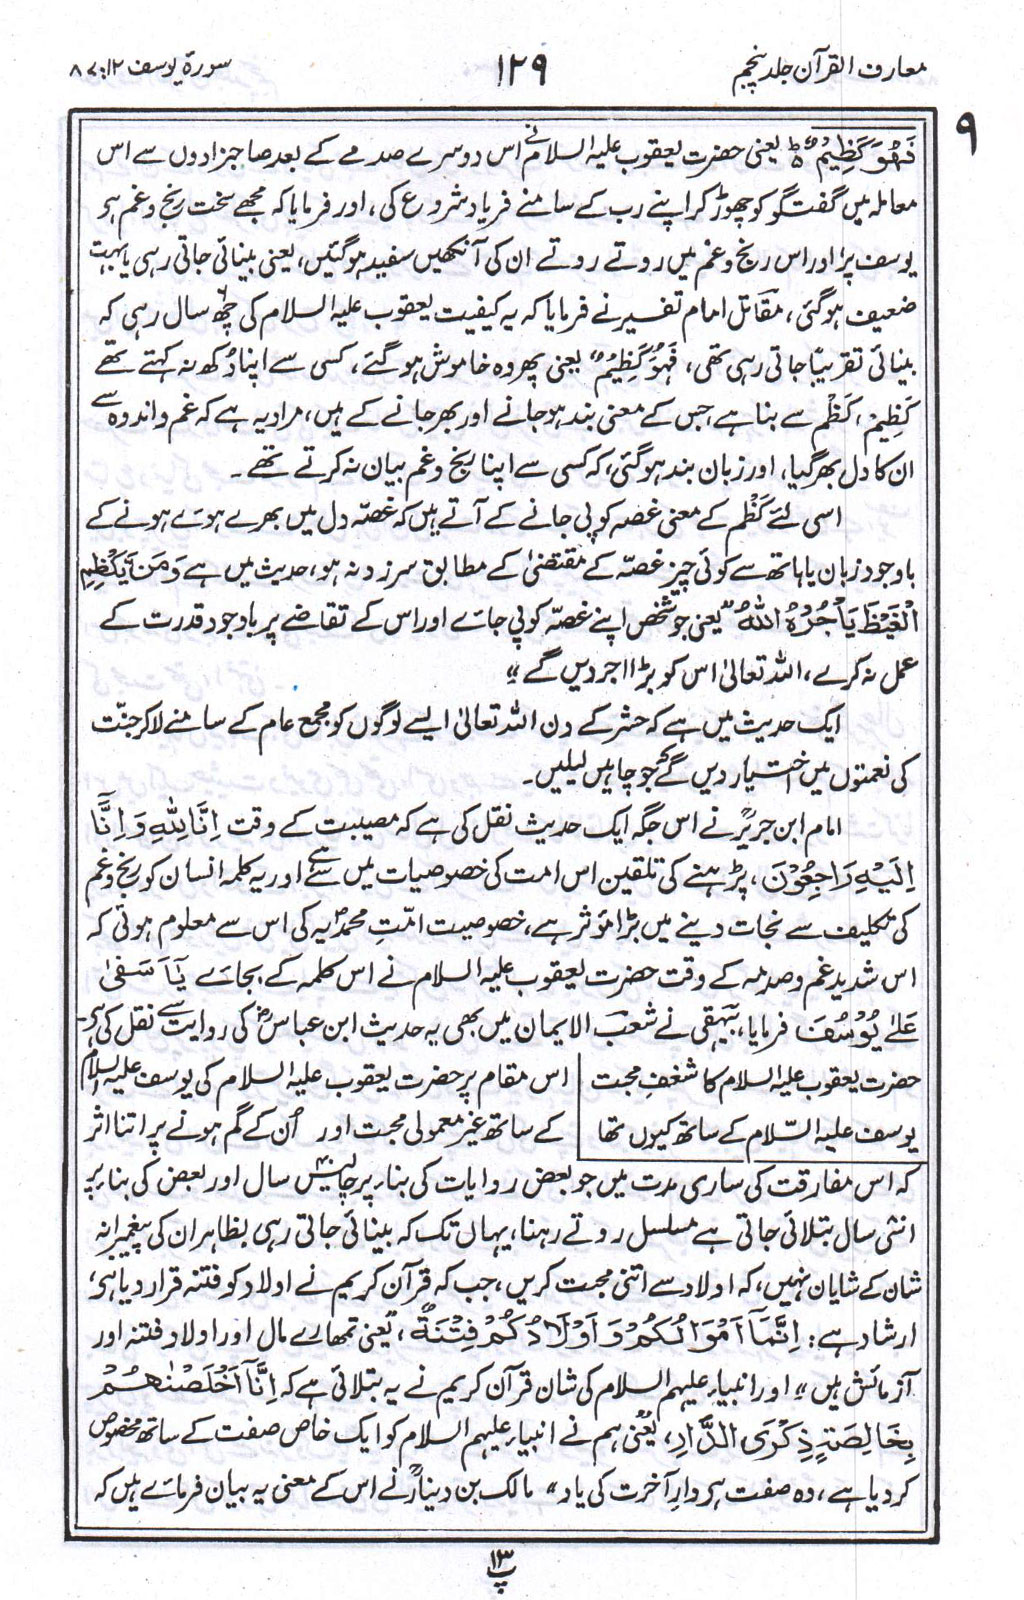 معارف القرآن جلد پنجم
۱۲۹
سورۃ یوسف ۱۲: ۸۷
۹
فَهُوَ كَظِيْمٌ ○ یعنی حضرت یعقوب علیہ السلام نے اس دوسرے صدمے کے بعد صاحبزادوں سے اس
معاملہ میں گفتگو کو چھوڑ کر اپنے رب کے سامنے فریاد شروع کی، اور فرمایا کہ مجھے سخت رنج و غم ہے
یوسف پر، اور اس رنج و غم میں روتے روتے ان کی آنکھیں سفید ہو گئیں، یعنی بینائی جاتی رہی یا بہت
ضعیف ہو گئی، مقاتل امام تفسیر نے فرمایا کہ یہ کیفیت یعقوب علیہ السلام کی چھ سال رہی کہ
بینائی تقریباً جاتی رہی تھی، فَهُوَ كَظِيْمٌ، یعنی پھر وہ خاموش ہو گئے، کسی سے اپنا دکھ نہ کہتے تھے
كَظِيْم، كَظْم سے بنا ہے جس کے معنی بند ہو جانے اور بھر جانے کے ہیں، مراد یہ ہے کہ غم و اندوہ سے
ان کا دل بھر گیا، اور زبان بند ہو گئی، کہ کسی سے اپنا رنج و غم بیان نہ کرتے تھے۔
اسی لئے كَظْم کے معنی غصہ کو پی جانے کے آتے ہیں کہ غصہ دل میں بھرے ہوئے ہونے کے
باوجود زبان یا ہاتھ سے کوئی چیز غصہ کے مقتضیٰ کے مطابق سرزد نہ ہو، حدیث میں ہے وَمَنْ يَّكْظِمِ
الْغَيْظَ يَاْجُرْهُ اللّٰهُ "یعنی جو شخص اپنے غصہ کو پی جائے اور اس کے تقاضے پر باوجود قدرت کے
عمل نہ کرے، اللہ تعالیٰ اس کو بڑا اجر دیں گے"
ایک حدیث میں ہے کہ حشر کے دن اللہ تعالیٰ ایسے لوگوں کو مجمع عام کے سامنے لا کر جنت
کی نعمتوں میں اختیار دیں گے کہ جو چاہیں لے لیں۔
امام ابن جریرؒ نے اس جگہ ایک حدیث نقل کی ہے کہ مصیبت کے وقت اِنَّا لِلّٰهِ وَاِنَّا
اِلَيْهِ رَاجِعُوْنَ، پڑھنے کی تلقین اس امت کی خصوصیات میں سے ہے اور یہ کلمہ انسان کو رنج و غم
کی تکلیف سے نجات دینے میں بڑا مؤثر ہے، خصوصیت امتِ محمدیہ کی اس سے معلوم ہوئی کہ
اس شدید غم و صدمہ کے وقت حضرت یعقوب علیہ السلام نے اس کلمہ کے بجائے يٰٓاَسَفٰى
عَلٰى يُوْسُفَ فرمایا، بیہقی نے شعب الایمان میں بھی یہ حدیث ابن عباسؓ کی روایت سے نقل کی ہے۔
حضرت یعقوب علیہ السلام کا شغفِ محبت
یوسف علیہ السّلام کے ساتھ کیوں تھا
اس مقام پر حضرت یعقوب علیہ السلام کی یوسف علیہ السلام
کے ساتھ غیر معمولی محبت اور اُن کے گم ہونے پر اتنا اثر
کہ اس مفارقت کی ساری مدت میں جو بعض روایات کی بناء پر چالیس سال اور بعض کی بناء پر
اسّی سال بتلائی جاتی ہے مسلسل روتے رہنا، یہاں تک کہ بینائی جاتی رہی بظاہر ان کی پیغمبرانہ
شان کے شایان نہیں، کہ اولاد سے اتنی محبت کریں، جب کہ قرآن کریم نے اولاد کو فتنہ قرار دیا ہے،
ارشاد ہے: اِنَّمَآ اَمْوَالُكُمْ وَاَوْلَادُكُمْ فِتْنَةٌ، "یعنی تمھارے مال اور اولاد فتنہ اور
آزمائش ہیں" اور انبیاء علیہم السلام کی شان قرآن کریم نے یہ بتلائی ہے کہ اِنَّآ اَخْلَصْنٰهُمْ
بِخَالِصَةٍ ذِكْرَى الدَّارِ، "یعنی ہم نے انبیاء علیہم السلام کو ایک خاص صفت کے ساتھ مخصوص
کر دیا ہے، وہ صفت ہے دارِ آخرت کی یاد" مالک بن دینارؒ نے اس کے معنی یہ بیان فرمائے ہیں کہ
پ ۱۳